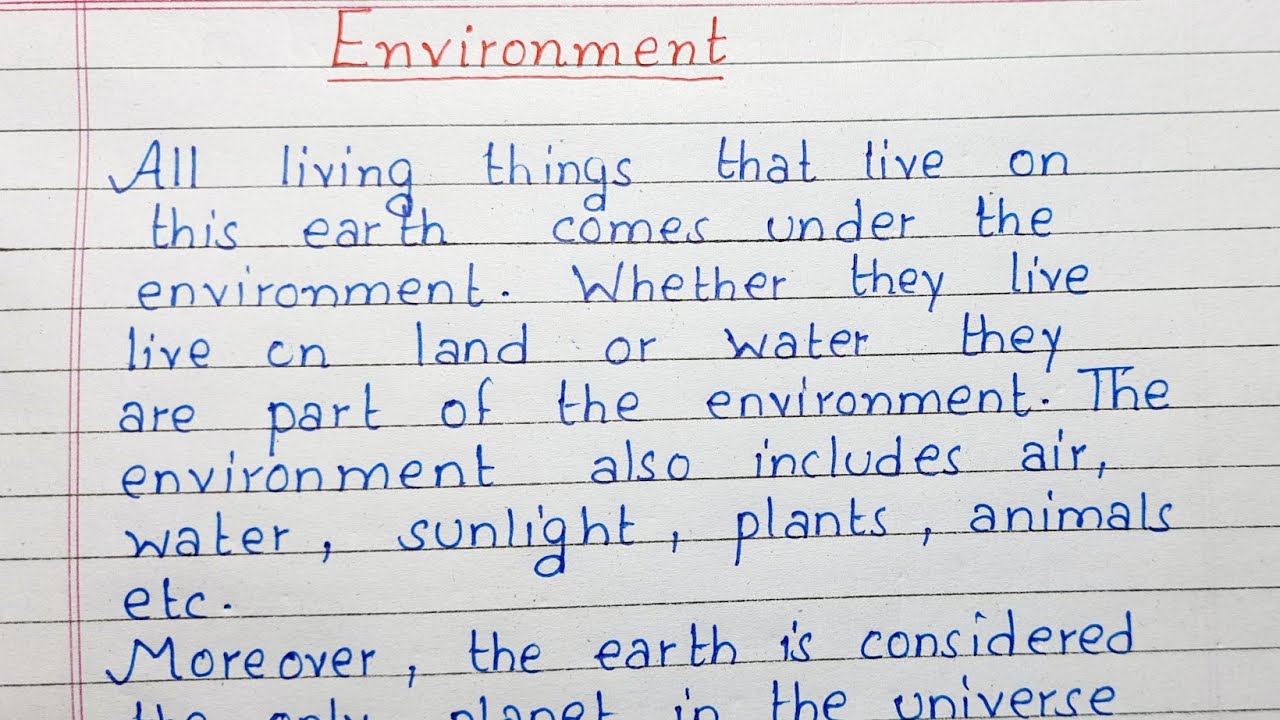 Environment
All living things that live on
this earth comes under the
environment. Whether they live
live on land or water they
are part of the environment. The
environment also includes air,
water, sunlight, plants, animals
etc.
Moreover, the earth is considered
the only planet in the universe